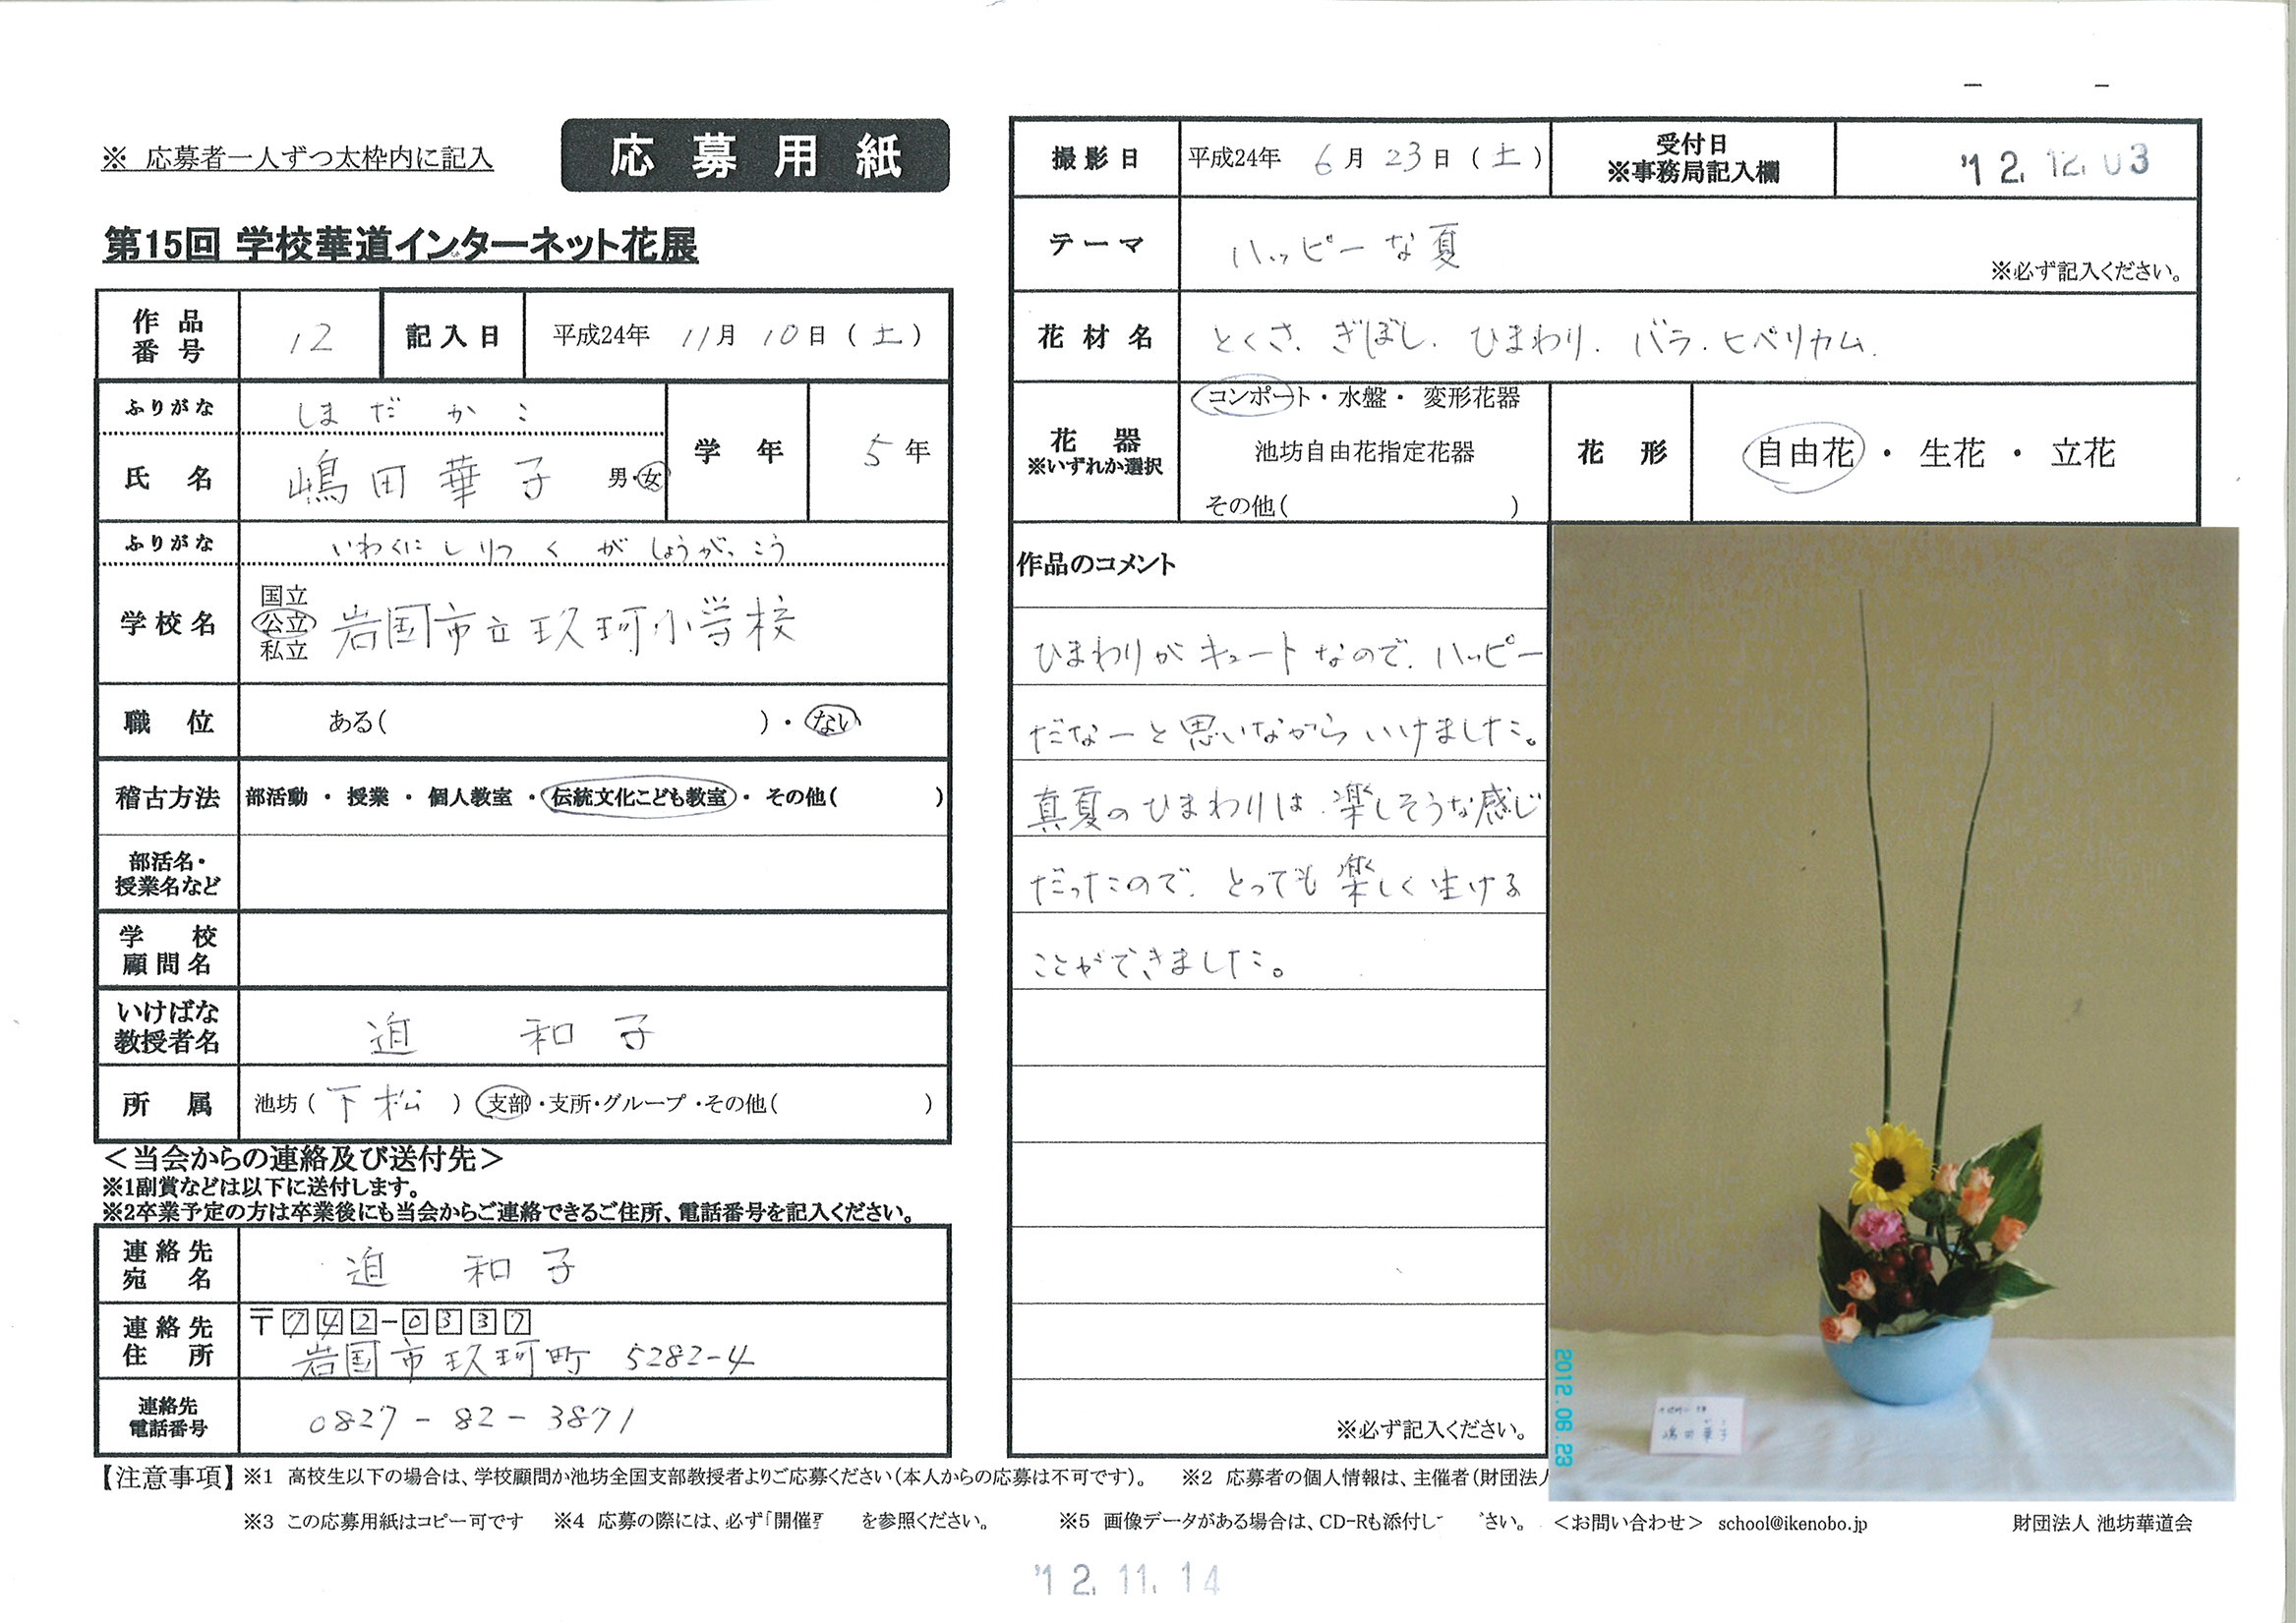 ※ 応募者一人ずつ太枠内に記入
応募用紙
第15回 学校華道インターネット花展
作品番号 12 記入日 平成24年 11月 10日 (土)
ふりがな しまだ かこ
氏名 嶋田華子 男・女 学年 5年
ふりがな いわくにしりつ くが しょうがっこう
学校名 国立 公立 私立 岩国市立玖珂小学校
職位 ある( )・ない
稽古方法 部活動 ・ 授業 ・ 個人教室 ・ 伝統文化こども教室 ・ その他( )
部活名・授業名など
学校顧問名
いけばな教授者名 迫 和子
所属 池坊(下松) 支部・支所・グループ・その他( )
＜当会からの連絡及び送付先＞
※1副賞などは以下に送付します。
※2卒業予定の方は卒業後にも当会からご連絡できるご住所、電話番号を記入ください。
連絡先宛名 迫 和子
連絡先住所 〒742-0337
岩国市玖珂町 5282-4
連絡先電話番号 0827-82-3871
撮影日 平成24年 6月 23日 (土) 受付日 ※事務局記入欄 '12.12.03
テーマ ハッピーな夏 ※必ず記入ください。
花材名 とくさ. ぎぼし. ひまわり. バラ. ヒペリカム.
花器 ※いずれか選択 コンポート・水盤・ 変形花器
池坊自由花指定花器
その他( )
花形 自由花 ・ 生花 ・ 立花
作品のコメント
ひまわりがキュートなので、ハッピー
だなーと思いながらいけました。
真夏のひまわりは、楽しそうな感じ
だったので、とっても楽しく生ける
ことができました。
※必ず記入ください。
嶋田華子
2012.06.23
【注意事項】 ※1 高校生以下の場合は、学校顧問か池坊全国支部教授者よりご応募ください(本人からの応募は不可です)。 ※2 応募者の個人情報は、主催者(財団法人
※3 この応募用紙はコピー可です ※4 応募の際には、必ず「開催 を参照ください。 ※5 画像データがある場合は、CD-Rも添付し さい。 ＜お問い合わせ＞ school@ikenobo.jp 財団法人 池坊華道会
'12.11.14